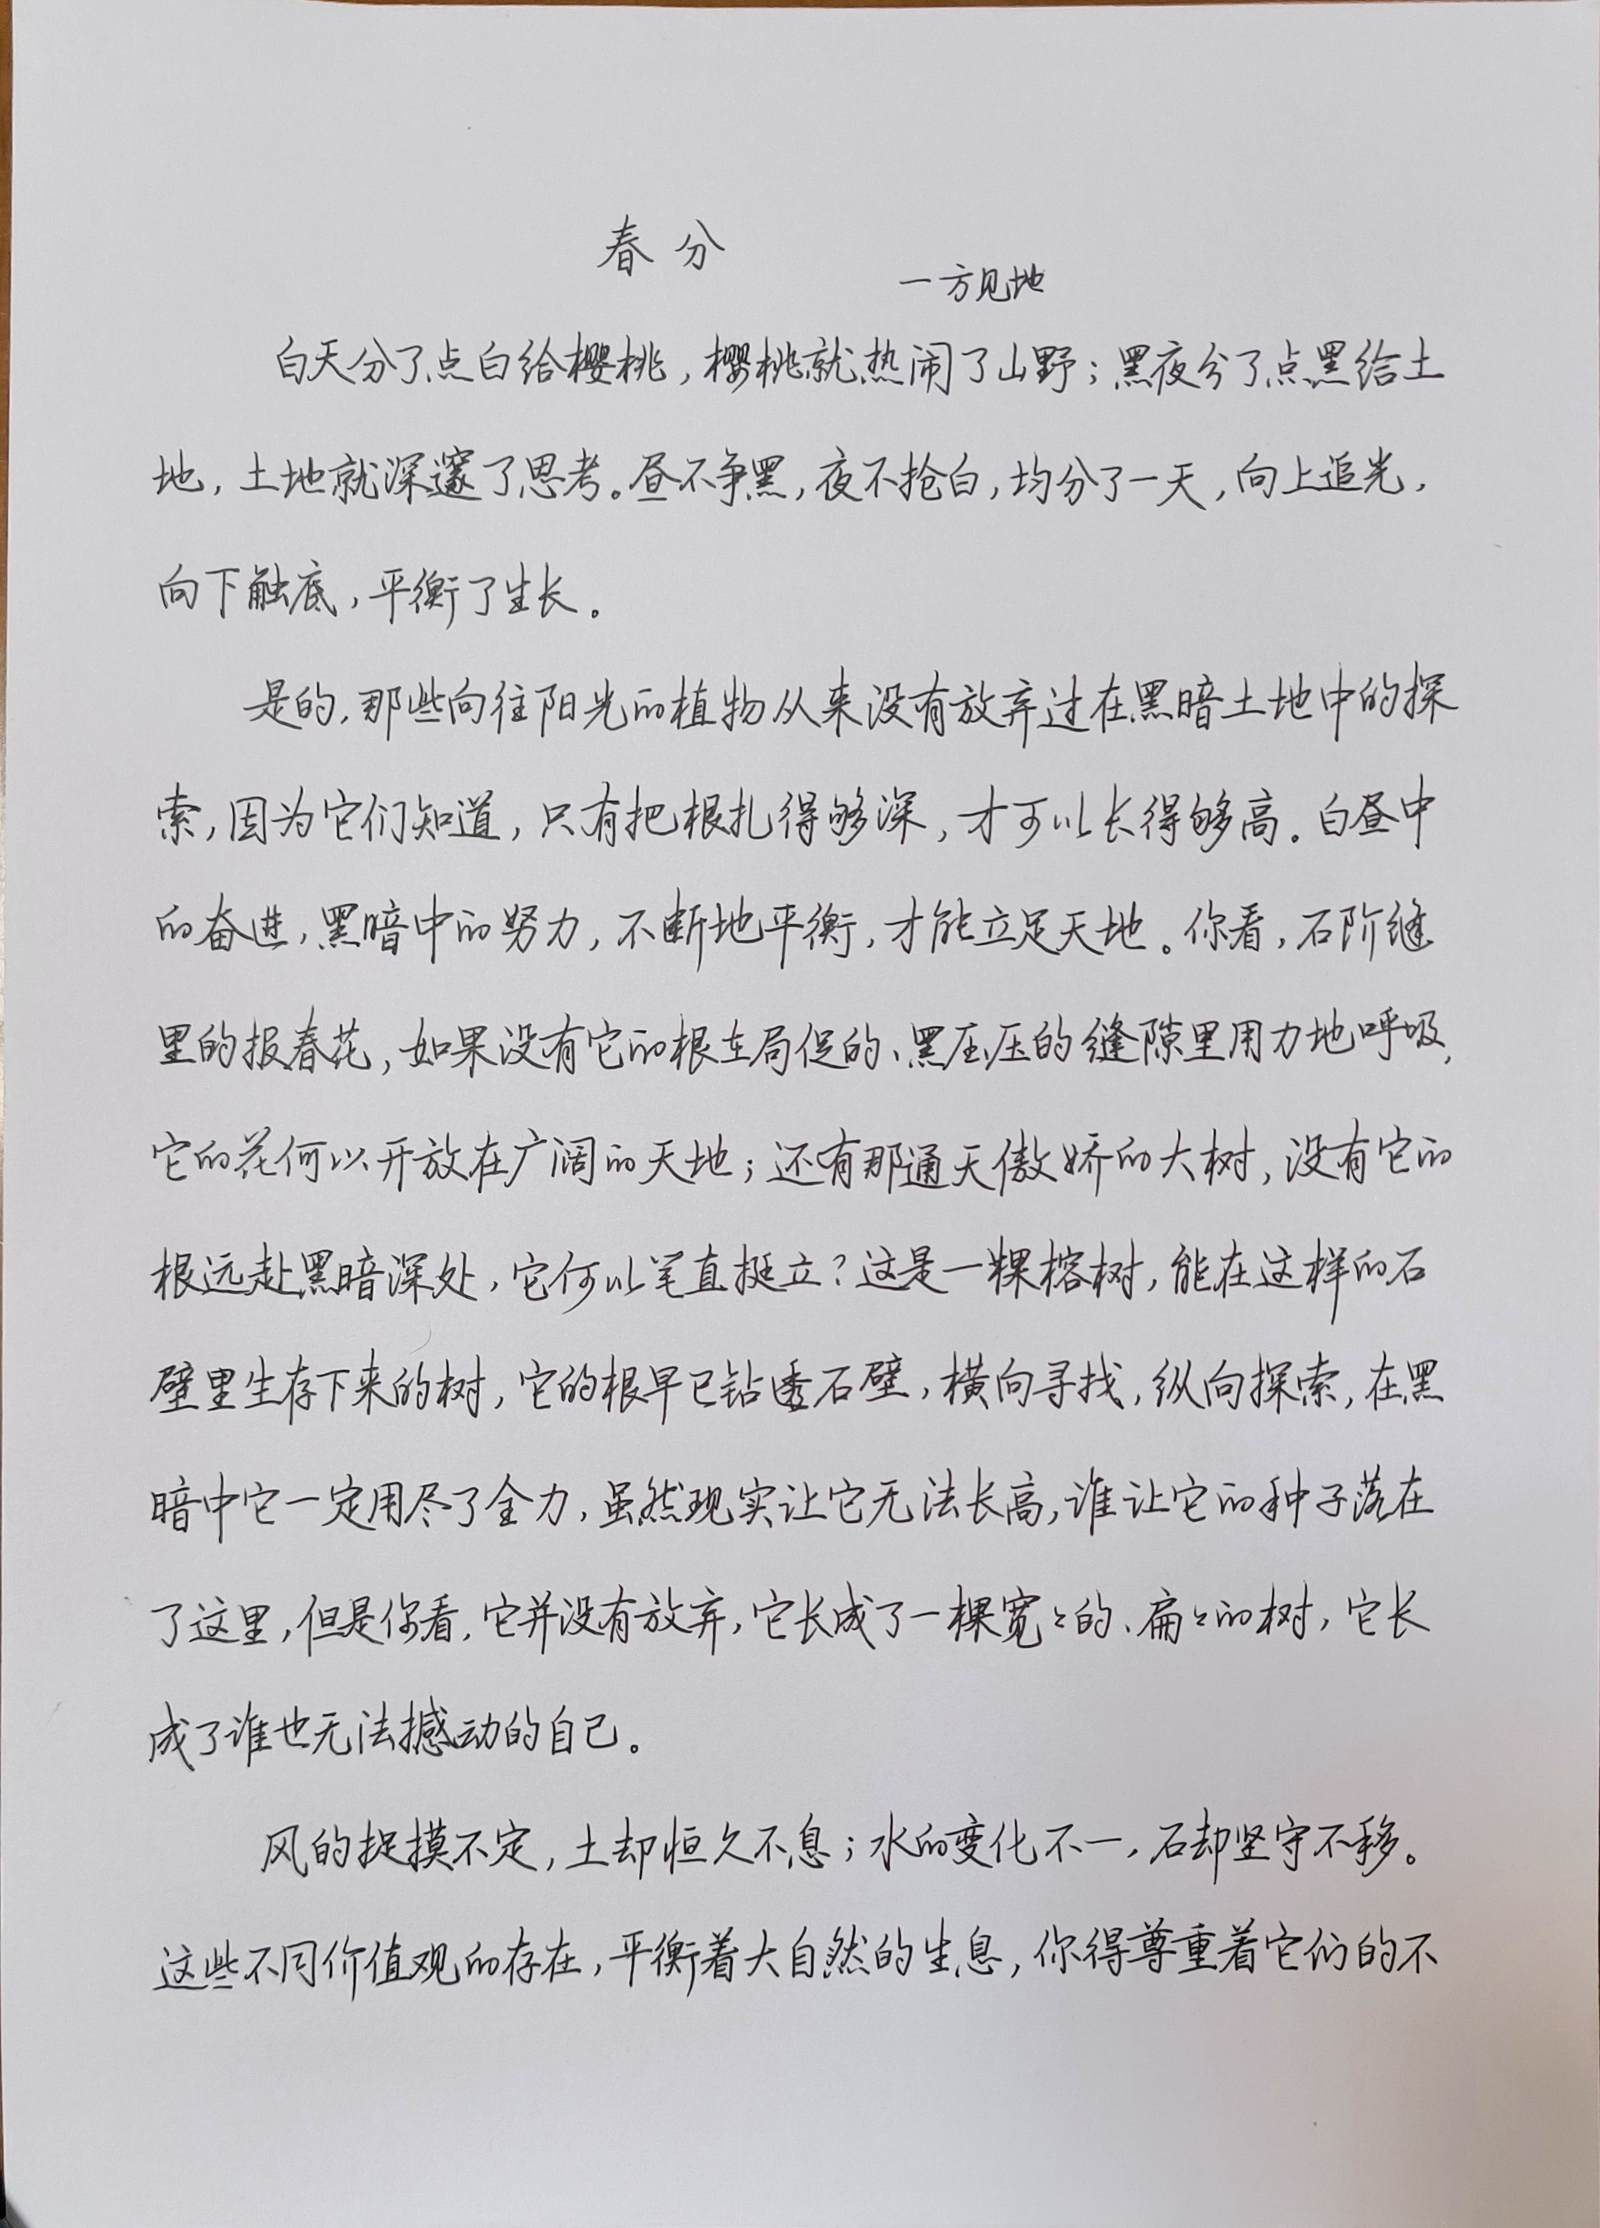 春分
一方见地
白天分了点白给樱桃，樱桃就热闹了山野；黑夜分了点黑给土
地，土地就深邃了思考。昼不争黑，夜不抢白，均分了一天，向上追光，
向下触底，平衡了生长。
是的，那些向往阳光的植物从来没有放弃过在黑暗土地中的探
索，因为它们知道，只有把根扎得够深，才可以长得够高。白昼中
的奋进，黑暗中的努力，不断地平衡，才能立足天地。你看，石阶缝
里的报春花，如果没有它的根在局促的、黑压压的缝隙里用力地呼吸，
它的花何以开放在广阔的天地；还有那通天傲娇的大树，没有它的
根远赴黑暗深处，它何以笔直挺立？这是一棵榕树，能在这样的石
壁里生存下来的树，它的根早已钻透石壁，横向寻找，纵向探索，在黑
暗中它一定用尽了全力，虽然现实让它无法长高，谁让它的种子落在
了这里，但是你看，它并没有放弃，它长成了一棵宽々的、扁々的树，它长
成了谁也无法撼动的自己。
风的捉摸不定，土却恒久不息；水的变化不一，石却坚守不移。
这些不同价值观的存在，平衡着大自然的生息，你得尊重着它们的不